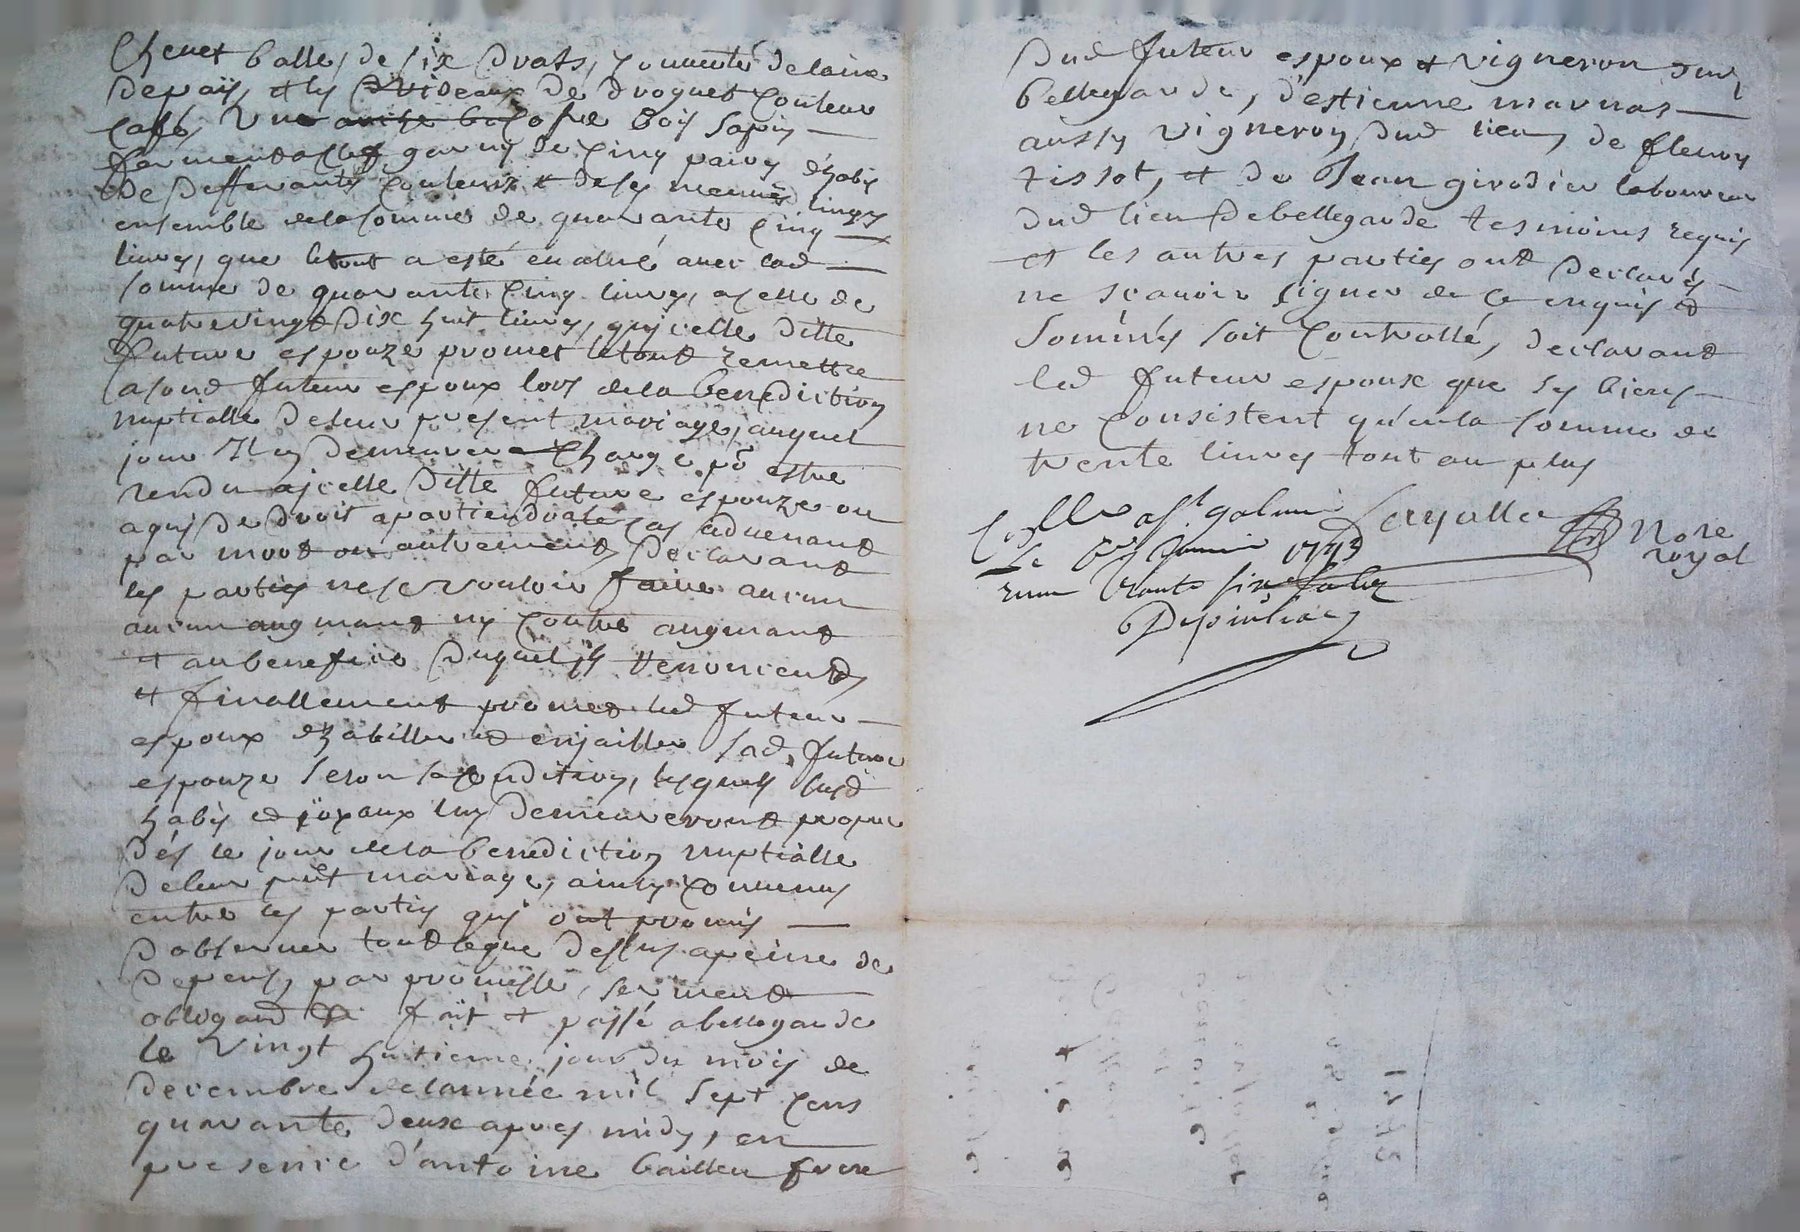 Chevet balle, de six draps, couverte de laine
de païs, et les rideaux de droguet couleur
caffé, Une arche bois sapin
fermentaclef, garny de cinq paires d'habis
de defferantes couleurs et de ses menues linges
ensemble de la somme de quarante cinq
livres, que le tout a esté évalué avec lad
somme de quarante cinq livres, a celle de
quatrevingt dix huit livres, qu'icelle ditte
future espouze promet le tout remettre
a sond futeur espoux lors de la benediction
nuptialle de leur present mariage, auquel
jour Il en demeurera chargé pr estre
rendu a icelle ditte future espouze ou
a qui de droit apartiendrat le cas advenant
par mort ou autrement, Declarant
les parties ne se vouloir faire aucun
aucun augmant ny contre augmant
et au benefice duquel ils renoncent,
et finallement promet led futeur
espoux d'habiller et enjailler sad, future
espouze selon sa condition, lesquels susd
habis et joyaux luy demeureront propre
dés le jour de la benediction nuptialle
de leur prnt mariage, ainsy convenus
entre les parties qui ont promis
d'observer tout ce que dessus a peine de
depens, par promesse, serment
obligaon &c fait et passé a bellegarde
le vingt huitieme jour du mois de
decembre de l'année mil sept cens
quarante deux apres midy, en
presence d'antoine bailleu frere
dud futeur espoux et vigneron dud
bellegarde, d'estienne marnas
aussy vigneron dud lieu, de fleury
tissot, et de Jean girodier laboureur
dud lieu de bellegarde tesmoins requis
et les autres parties ont declarés
ne scavoir signer de ce enquis et
sommés soit controllé, declarant
led futeur espoux que ses biens
ne consistent qu'en la somme de
trente livres tout au plus
Collé a st galmier
Le janvier 1743
recu trante six sols
Nore
royal